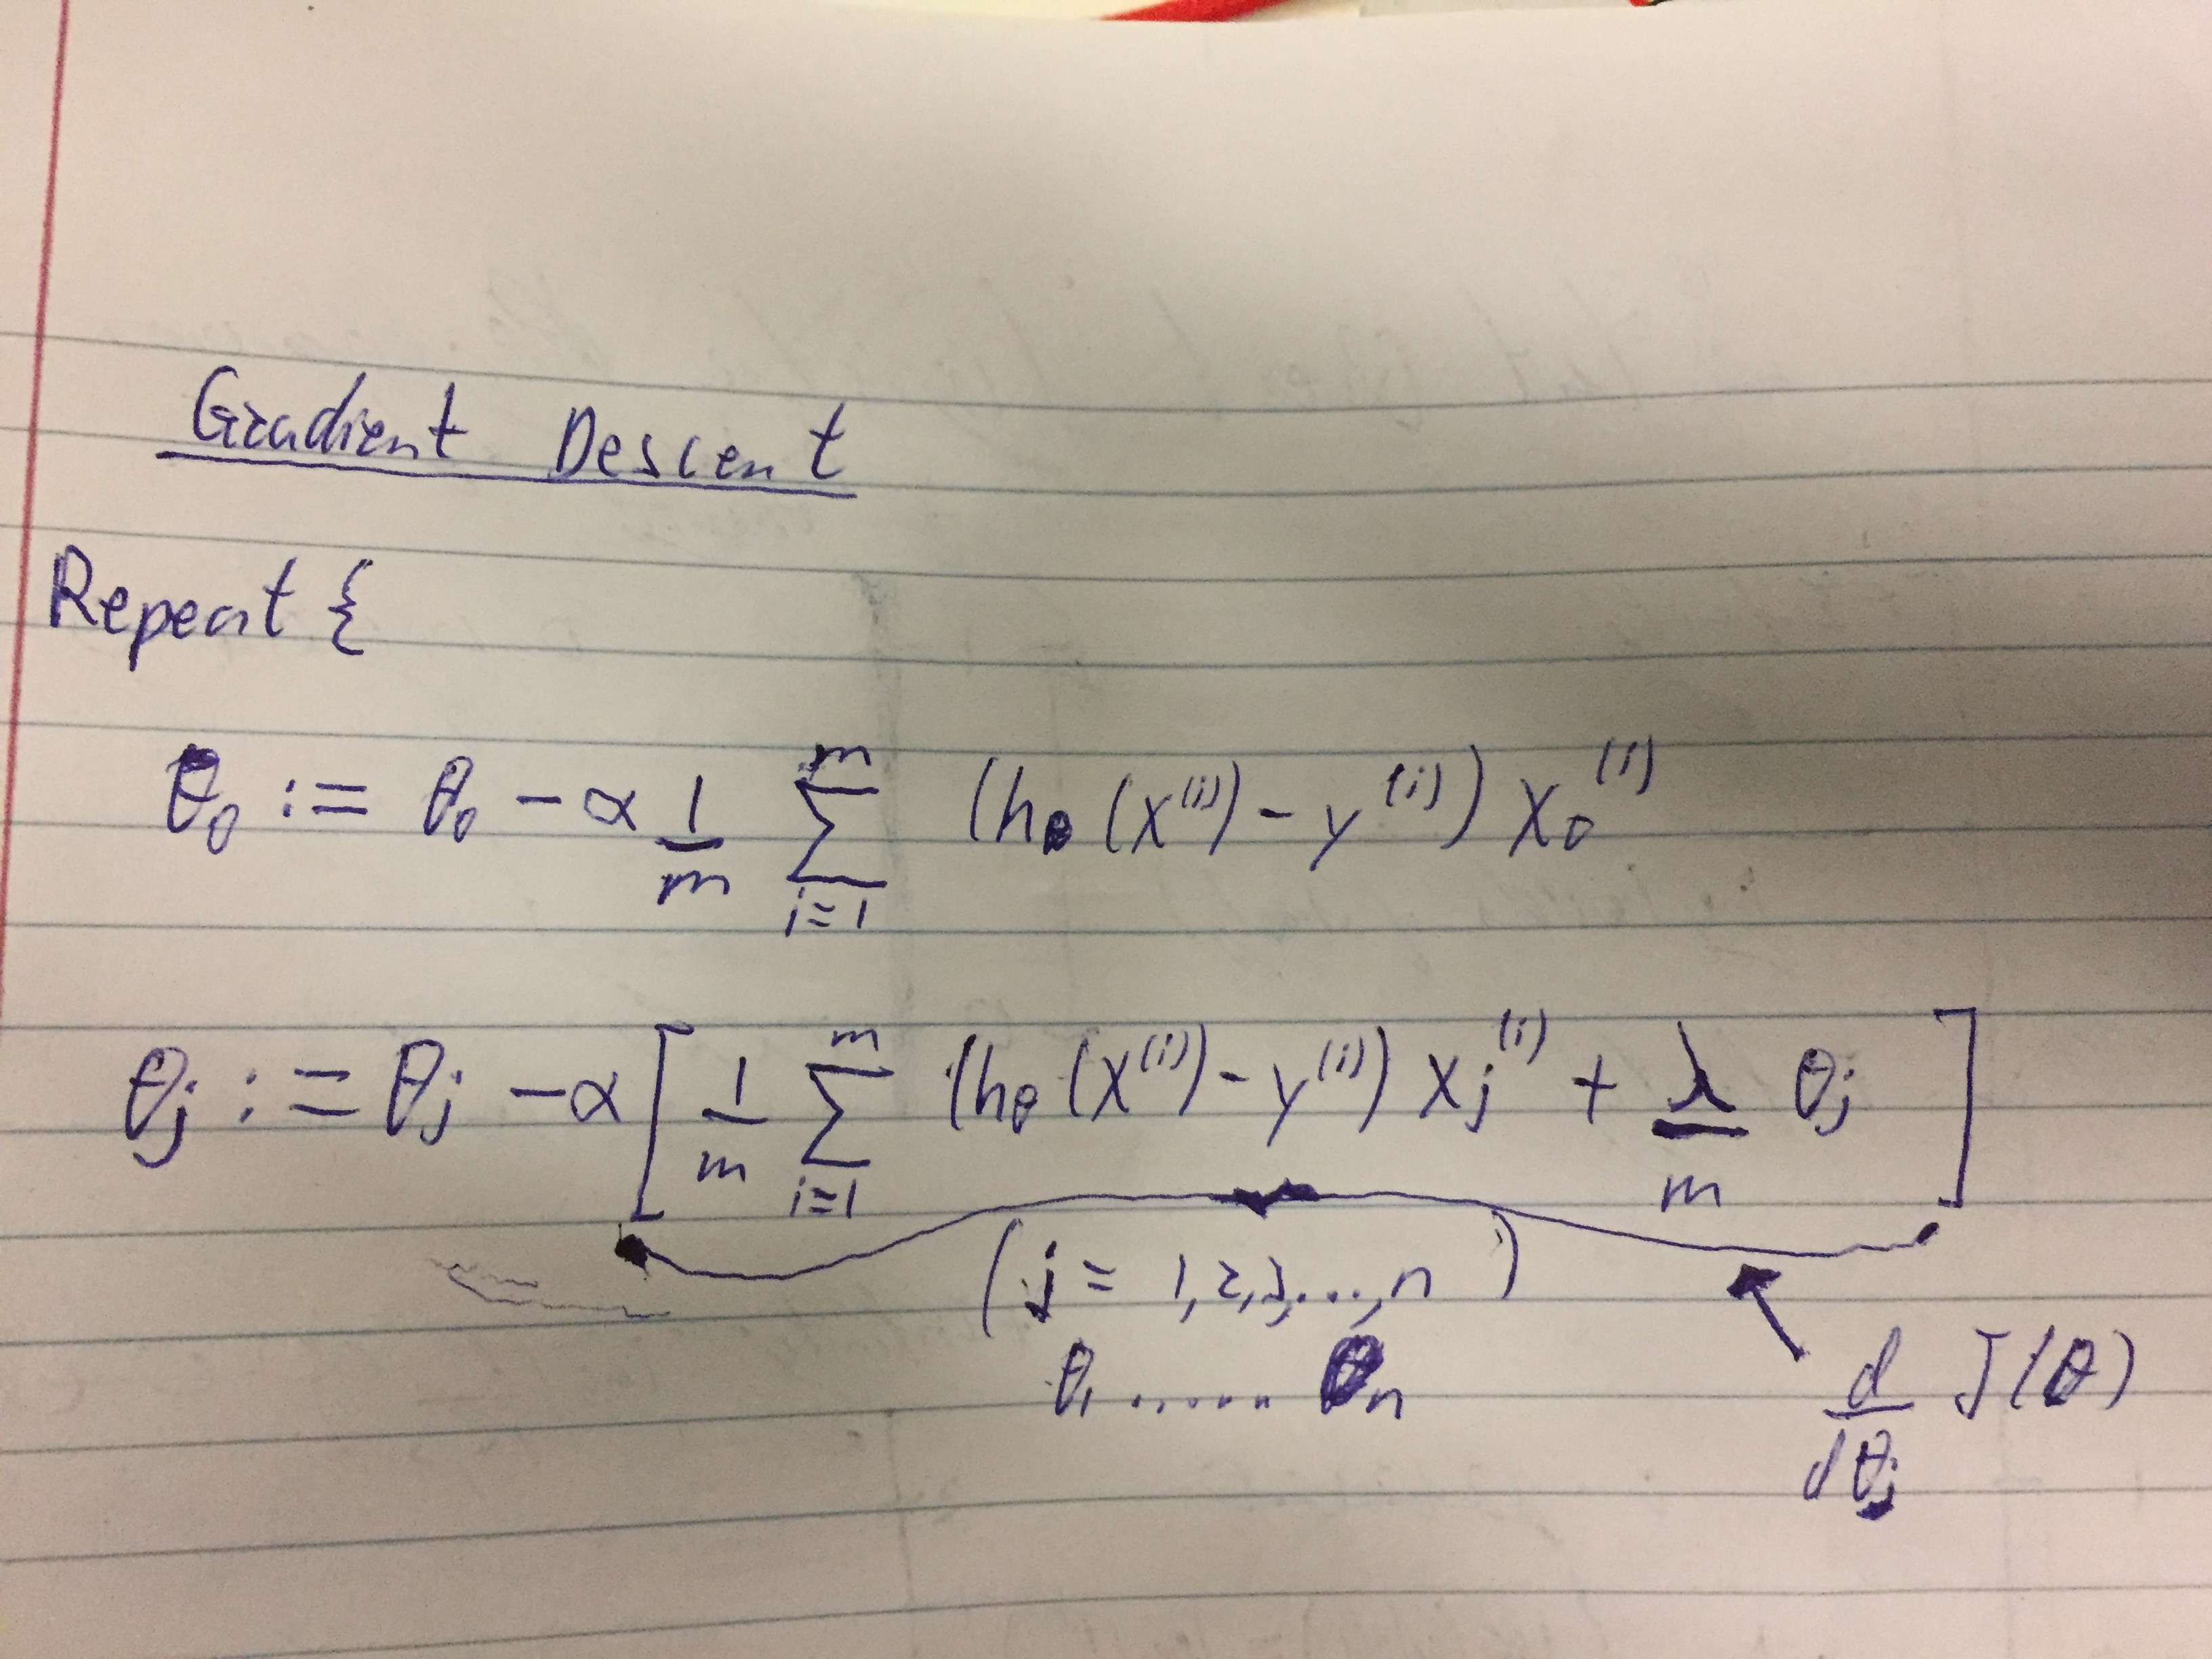 Gradient Descent
Repeat {
θ₀ := θ₀ - α 1/m ∑_{i=1}^{m} (h_θ(x^{(i)}) - y^{(i)}) x₀^{(i)}
θj := θj - α [ 1/m ∑_{i=1}^{m} (h_θ(x^{(i)}) - y^{(i)}) xj^{(i)} + λ/m θj ]
(j = 1,2,3,...,n)
θ₁ ...... θn
d/dθj J(θ)